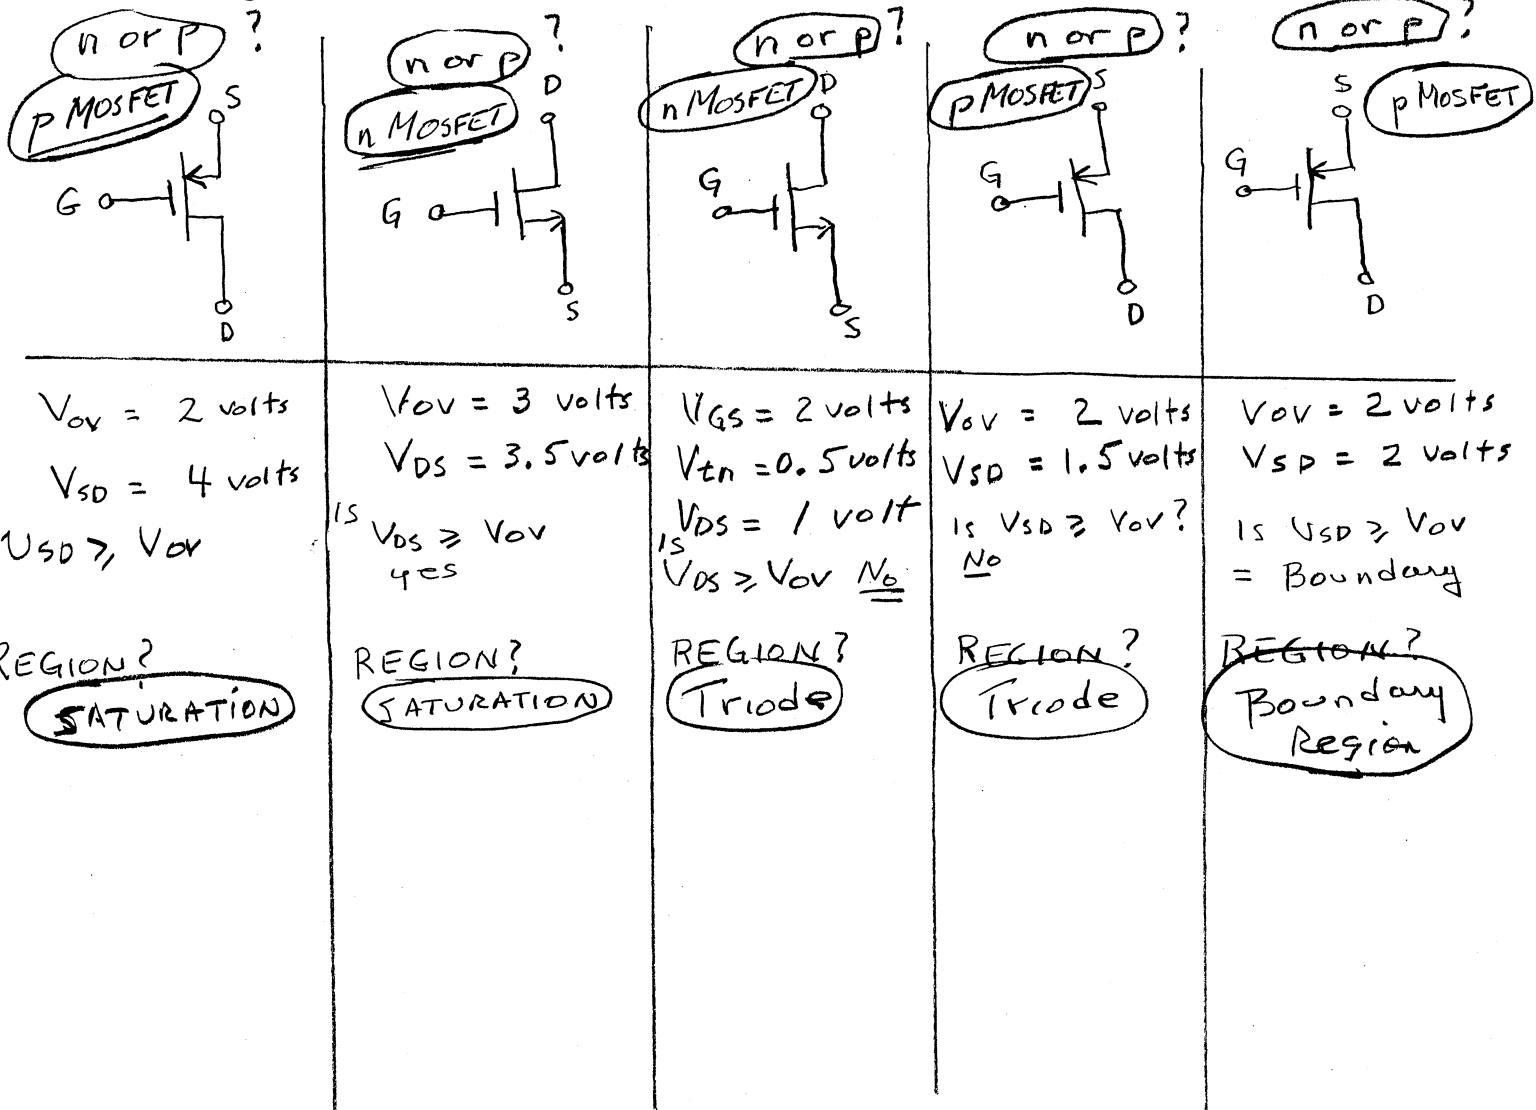 n or p ?
pMOSFET
S
G
D
Vov = 2 volts
VSD = 4 volts
VSD ≥ Vov
REGION?
SATURATION
n or p ?
nMOSFET
D
G
S
VOV = 3 volts
VDS = 3.5 volts
IS VDS ≥ VOV
yes
REGION?
SATURATION
n or p ?
nMOSFET
D
G
S
VGS = 2 volts
Vtn = 0.5 volts
VDS = 1 volt
IS
VDS ≥ VOV No
REGION?
Triode
n or p ?
pMOSFET
S
G
D
VOV = 2 volts
VSD = 1.5 volts
Is VSD ≥ VOV?
No
REGION?
Triode
n or p ?
S
pMOSFET
G
D
VOV = 2 volts
VSD = 2 volts
Is VSD ≥ VOV
= Boundary
REGION?
Boundary
Region